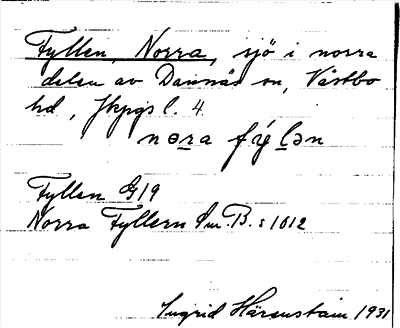 Fyllen, Norra, sjö i norra
delen av Dannäs sn, Västbo
hd, Jkpgs l. 4
nøra fýlən
Fyllen G19
Norra Fyllern Sm. B. s 1012
Ingrid Härenstam 1931